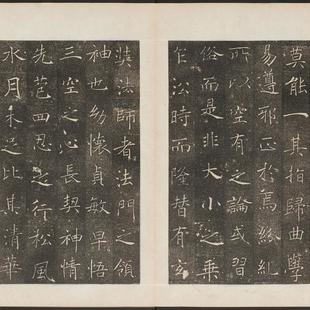 莫能一其指歸曲學
易遵邪正於焉紛糺
所以空有之論或習
俗而是非大小之乘
乍沿時而隆替有玄
奘法師者法門之領
袖也幼懷貞敏早悟
三空之心長契神情
先苞四忍之行松風
水月未足比其清華